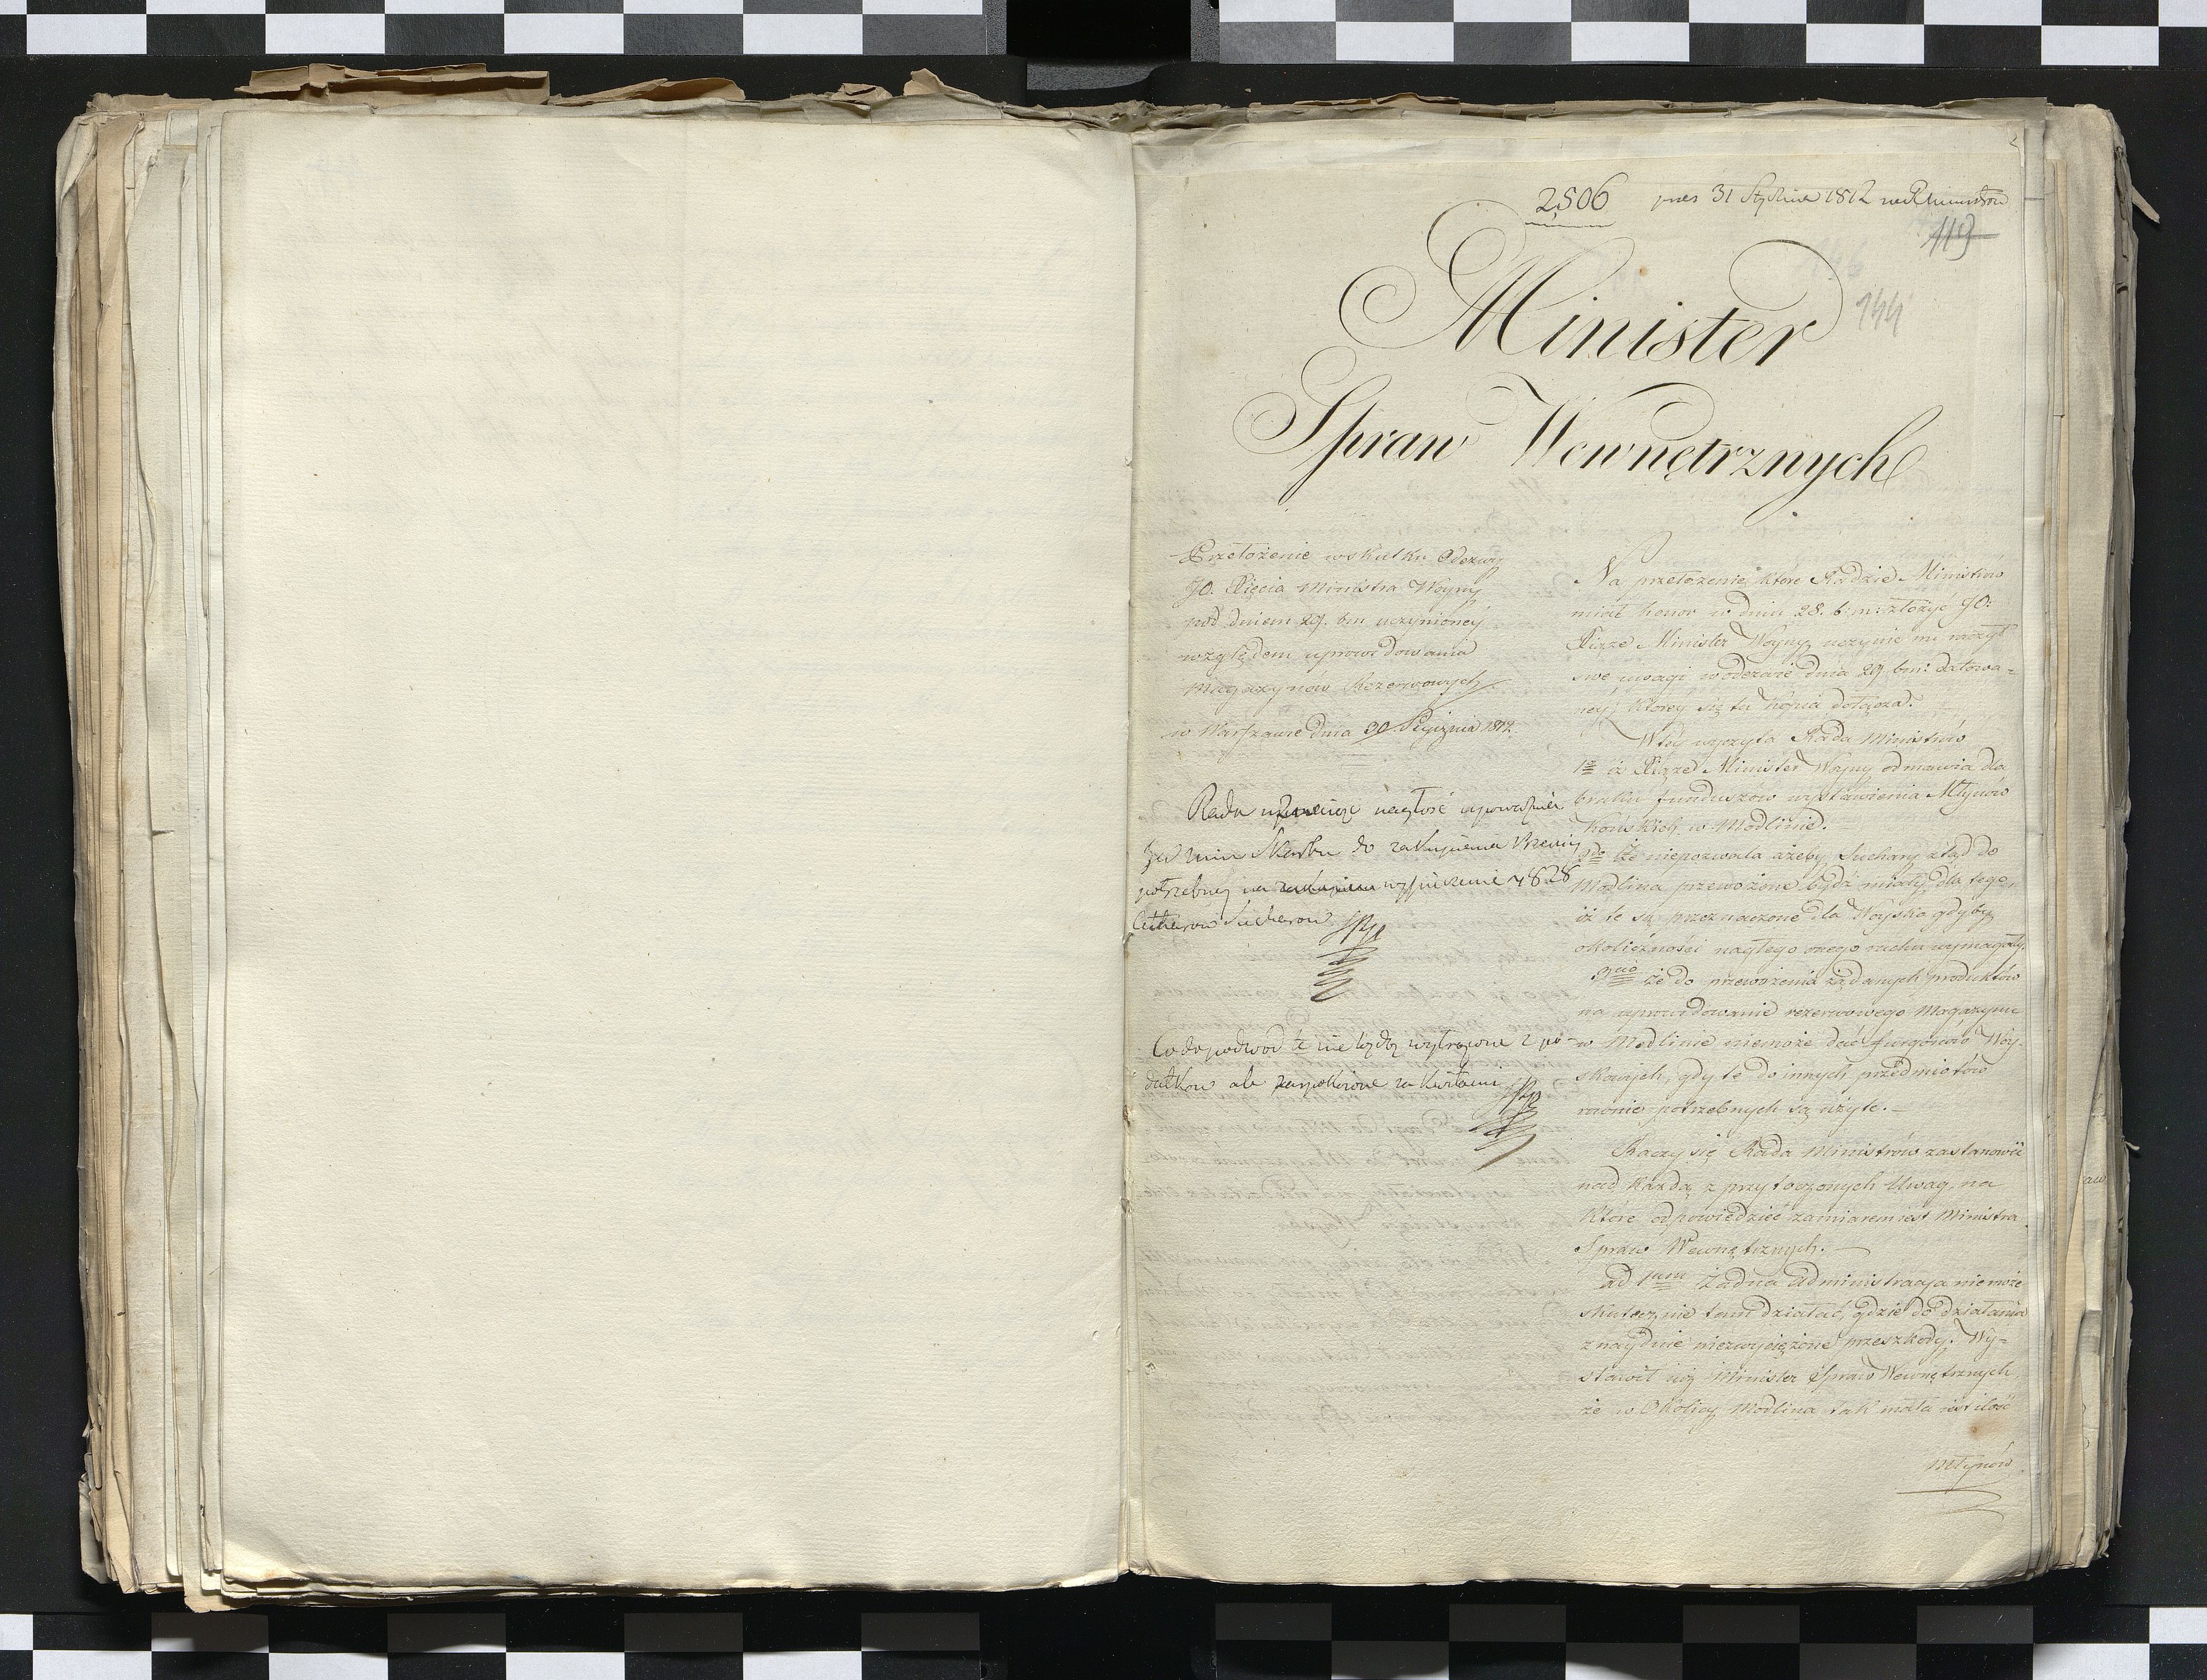 2506 pres 31 Stycznia 1812 na R Ministrów
119
144
Minister
Spraw Wewnętrznych
Przełożenie w skutku Odezwy
JO. Xięcia Ministra Woyny
pod dniem 29. bm uczynioney
względem uprowidowania
Magazynów Rezerwowych
w Warszawie dnia 30 Stycznia 1812.
Rada nagłość upoważnia
Min Skarbu do zakupienia
potrzebney na wypieczenie 4828
Cetnarow Sucharow
Co do podwod te nie będą wytrącone z po-
datkow ale zaspokoione za kwitami
Na przełożenie, które Radzie Ministrów
miał honor w dniu 28. b: m: złożyć JO:
Xiąże Minister Woyny, uczynić mi raczył
swe uwagi w odezwie dnia 29 bm: datowa=
ney, którey się tu kopia dołącza.
W tey wyczyta Rada Ministrów
1mo iż Xiąże Minister Woyny odmawia dla
braku funduszow wystawienia Młynów
końskich w Modlinie.
2do Że niepozwala ażeby Suchary ztąd do
Modlina przewożone bydź miały, dla tego,
iż te są przeznaczone dla Woyska gdyby
okoliczności nagłego onego ruchu wymagały.
3tio że do przewożenia żądanych produktów
na uprowidowanie rezerwowego Magazynu
w Modlinie niemoże dać furgonów Woy-
skowych, gdy te do innych przedmiotów
rownie potrzebnych są użyte. –
Raczy się Rada Ministrów zastanowić
nad każdą z przytoczonych Uwag, na
które odpowiedzieć zamiarem iest Ministra
Spraw Wewnętrznych. –
ad 1mum Żadna administracya niemoże
skutecznie tam działać, gdzie do działania
znayduie niezwyciężone przeszkody. Wy=
stawił iuż Minister Spraw Wewnętrznych,
że w Okolicy Modlina tak mała iest ilość
Młynów